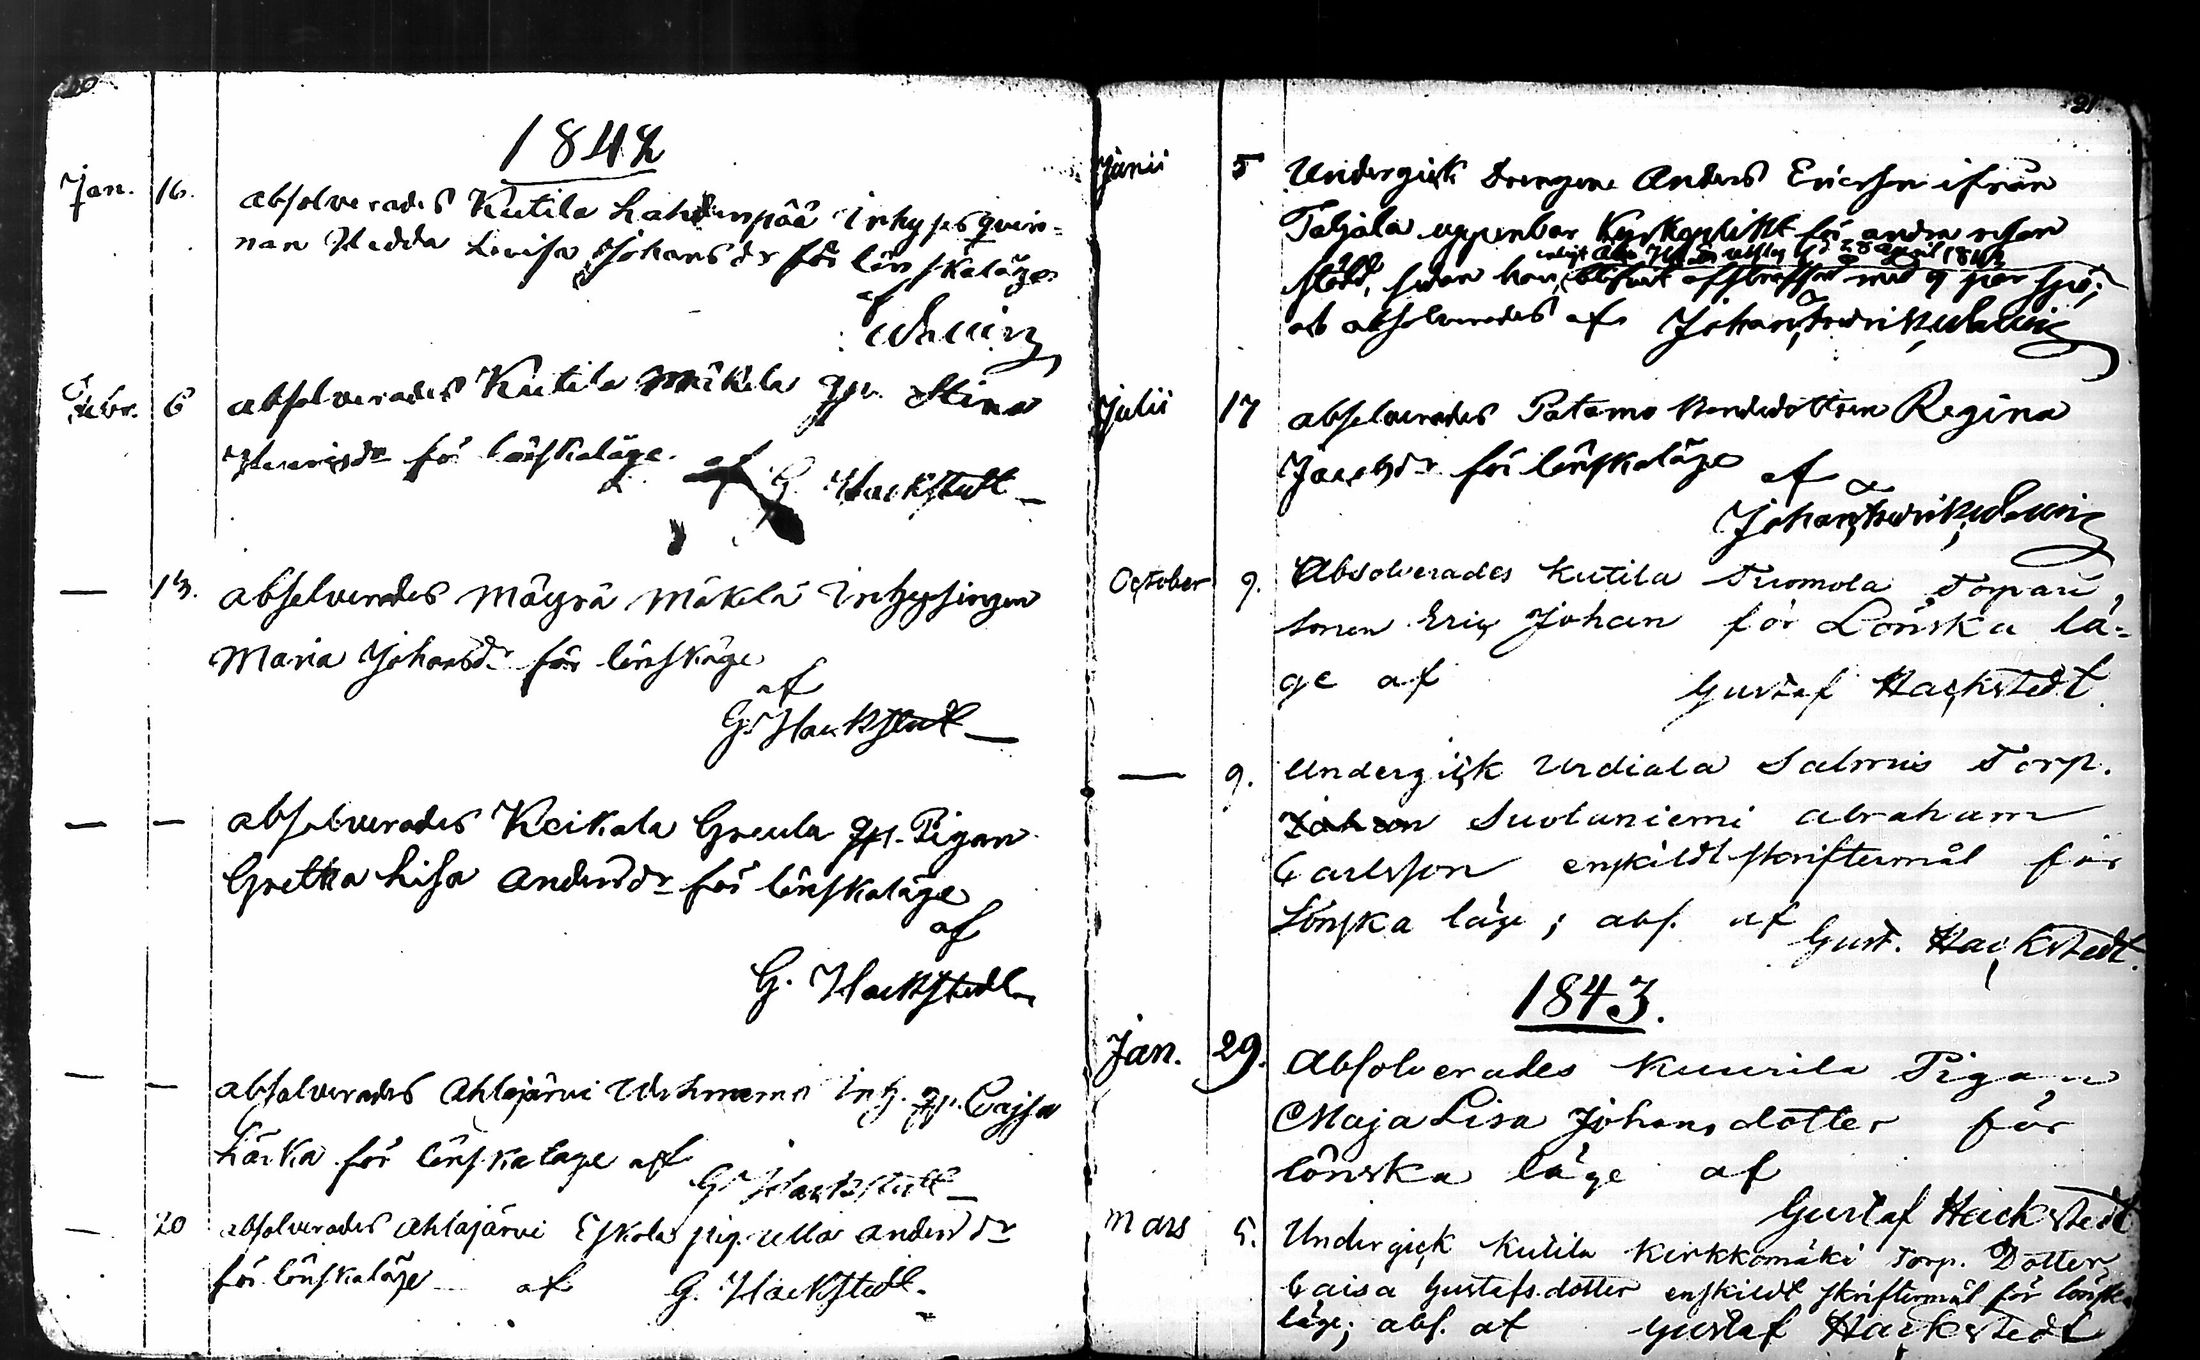 20
1842
Jan. 16. absolverades Kutila Lahdenpää Inhyses qvin-
nan Hedda Lovisa Johans dr för lönskaläge
af
Febr. 6 absolverades Kutila Mäkelä Stina
Henricsdr för lönskaläge. af G. Hackstedt
— 13. absolverades Mäyrä Mäkelä Inhysingen
Maria Johansdr för lönskäge
af
G. Hackstedt
— — absolverades Keikala Greula Pigan
Gretha Lisa Andersdr för lönskaläge
af
G. Hackstedt
— — absolverades Ahlajärvi Inh. Cajsa
Lärka för lönskaläge af
G. Hackstedt
— 20 absolverades Ahlajärvi Eskola pig. Ulla Anders dr
för lönskaläge af G. Hackstedt.
21
Junii 5 Undergick Drengen Anders Ericsson ifrån
Taljala uppenbar Kyrkoplikt för andra resan
enligt Åbo utslag 28 April 1842
stöld, sedan han blifvit afstraffad med 9 par spö;
och absolverades af Johan Fredrik
Julii 17 absolverades Potamo Bondedottren Regina
Jacobsdr för lönskaläge af
Johan Fredrik
October 9. Absolverades Kutila Tuomola Torpare
sonen Eric Johan för Lönska lä-
ge af Gustaf Hackstedt.
— 9. Undergick Urdiala Salmis Torp.
Johan Suoluniemi Abraham
Carlsson enskildt skriftermål för
Lönska läge; abs. af Gust. Hackstedt.
1843.
Jan. 29. Absolverades Kuurila Pigan
Maja Lisa Johansdotter för
lönska läge af
Gustaf Hackstedt
Mars 5. Undergick Kutila Kirkkomäki Torp. Dotter
Caisa Gustafs dotter enskildt skriftermål för lönska
läge; abs. af Gustaf Hackstedt